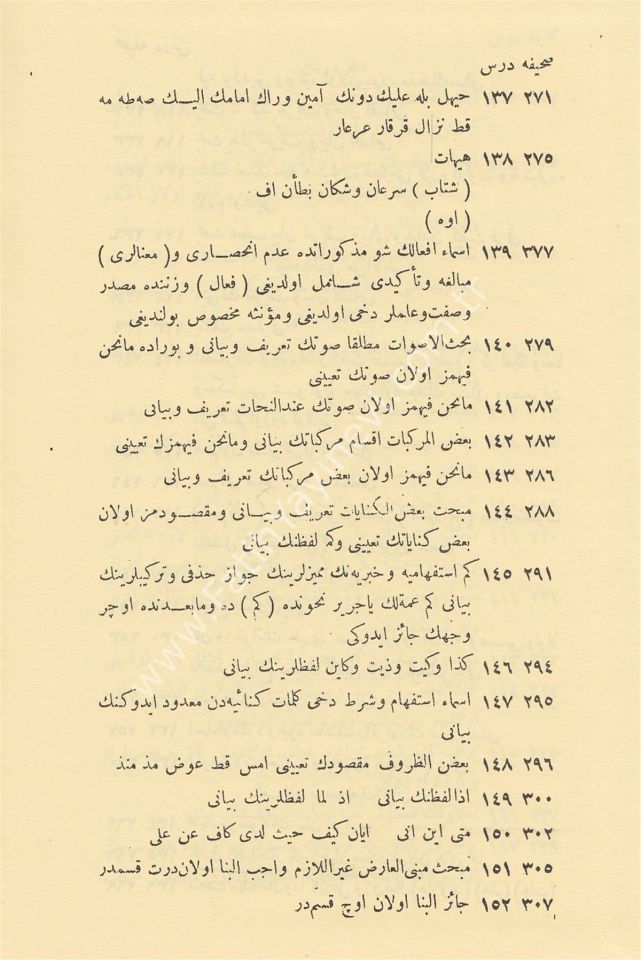 صحيفه درس
٢٧١ ١٣٧ حيهل بله عليك دونك آمين وراك امامك اليـك صه طه مه
قط نزال قرقار عرعار
٢٧٥ ١٣٨ هيهات
( شتاب ) سرعان وشكان بطأن اف
( اوه )
٣٧٧ ١٣٩ اسماء افعالك شو مذكوراتده عدم انحصـارى و( معنالرى )
مبالغه وتأكيدى شـامل اولديغى ( فعال ) وزننده مصدر
وصفت وعلملر دخى اولديغى ومؤنثه مخصوص بولنديغى
٢٧٩ ١٤٠ بحث الاصوات مطلقا صوتك تعريف وبيانى و بوراده مانحن
فيهمز اولان صوتك تعيينى
٢٨٢ ١٤١ مانحن فيهمز اولان صوتك عندالنحات تعريف وبيانى
٢٨٣ ١٤٢ بعض المركبات اقسام مركباتك بيانى ومانحن فيهمزك تعيينى
٢٨٦ ١٤٣ مانحن فيهمز اولان بعض مركباتك تعريف وبيانى
٢٨٨ ١٤٤ مبحث بعض الكنايات تعريف وبيـانى ومقصـودمز اولان
بعض كناياتك تعيينى وكم لفظنك بيانى
٢٩١ ١٤٥ كم استفهاميه وخبريه نك مميزلرينك جواز حذفى وتركيبلرينك
بيانى كم عمةلك ياجرير نحونده ( كم ) ده ومابعـدنده اوچر
وجهك جائز ايدوكى
٢٩٤ ١٤٦ كذا وكيت وذيت وكاين لفظلرينك بيانى
٢٩٥ ١٤٧ اسماء استفهام وشرط دخى كلمات كنائيه دن معدود ايدوكنك
بيانى
٢٩٦ ١٤٨ بعض الظروف مقصودك تعيينى امس قط عوض مذ منذ
٣٠٠ ١٤٩ اذا لفظنك بيانى اذ لما لفظلرينك بيانى
٣٠٢ ١٥٠ متى اين انى ايان كيف حيث لدى كاف عن على
٣٠٥ ١٥١ مبحث مبنى العارض غير اللازم واجب البنا اولان درت قسمدر
٣٠٧ ١٥٢ جائز البنا اولان اوچ قسم در